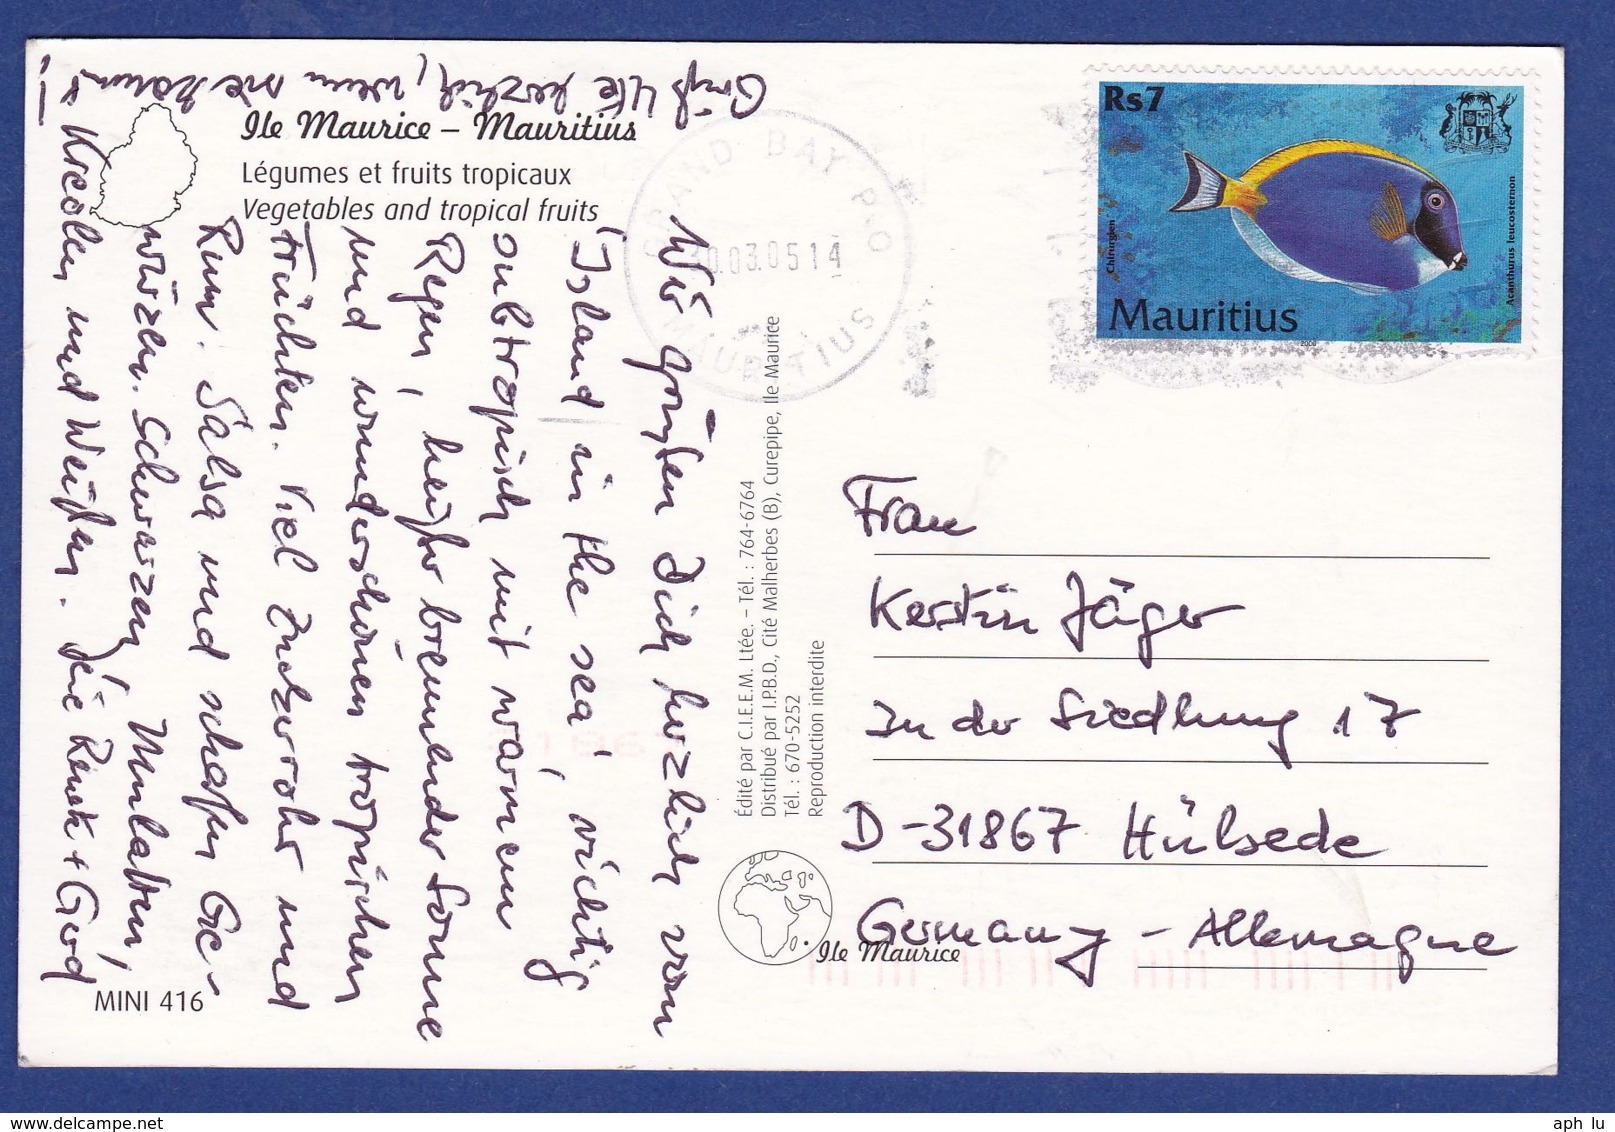 Grüß Ute herzlich, wenn sie kommt!
Ile Maurice – Mauritius
Légumes et fruits tropicaux
Vegetables and tropical fruits
Wir grüßen Dich herzlich vom
'Island in the sea', richtig
subtropisch mit warmem
Regen, heißer brennender Sonne
und wunderschönen tropischen
Früchten. Viel Zuckerrohr und
Rum. Salsa und scharfen Ge-
würzen. Schwarzen, Mulatten,
Kreolen und Weißen. Die Renate + Gerd
MINI 416
Édité par C.I.E.E.M. Ltée. – Tél. : 764-6764
Distribué par I.P.B.D., Cité Malherbes (B), Curepipe, Ile Maurice
Tél. : 670-5252
Reproduction interdite
Ile Maurice
GRAND BAY P.O
30.03.05 14
MAURITIUS
Rs7
Chirurgien
Acanthurus leucosternon
Mauritius
Frau
Kerstin Jäger
In der Siedlung 17
D-31867 Hülsede
Germany - Allemagne
31867
aph lu